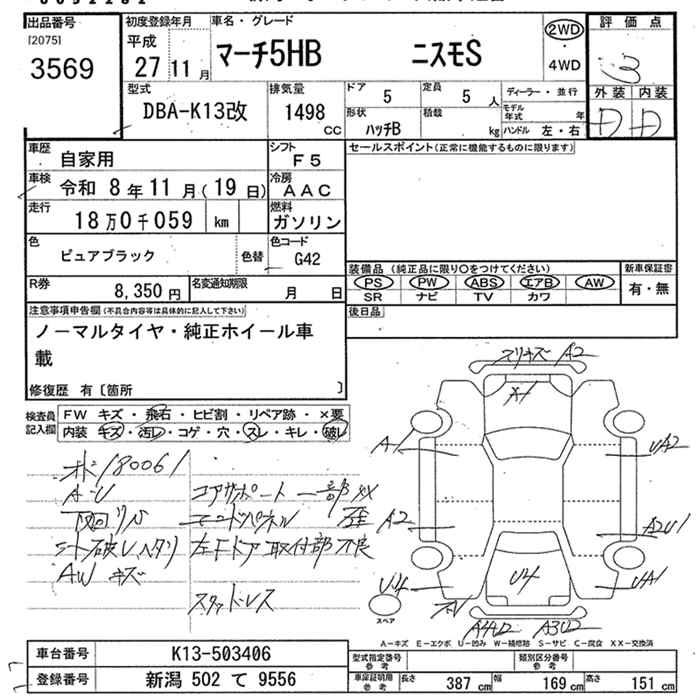 出品番号
[2075]
3569
初度登録年月
平成
27 11 月
車名・グレード
マーチ5HB ニスモS
2WD
・
4WD
評価点
3
外装 内装
D D
型式
DBA-K13改
排気量
1498
CC
ドア
5
定員
5 人
形状
ハッチB
積載
kg
ディーラー・並行
モデル年式 年
ハンドル 左・右
車歴
自家用
シフト
F5
車検
令和 8年11月(19日)
冷房
AAC
走行
18万0千059 km
燃料
ガソリン
色
ピュアブラック
色替
色コード
G42
R券
8,350円
名変通知期限
月 日
セールスポイント(正常に機能するものに限ります)
装備品 (純正品に限り○をつけてください)
PS PW ABS エアB AW
SR ナビ TV カワ
新車保証書
有・無
後日品
注意事項申告欄(不具合内容等は具体的に記入して下さい)
ノーマルタイヤ・純正ホイール車
載
修復歴 有〔箇所 〕
検査員
記入欄
FW キズ・飛石・ヒビ割・リペア跡・×要
内装 キズ・汚レ・コゲ・穴・スレ・キレ・破レ
180061
A・U
下回リサビ
シート破レ ヘタリ
AW キズ
コアサポート一部XX
エンドパネル 歪
左Fドア取付部不良
スタッドレス
スリキズ A2
A1
A2
U4
UA2
A2U1
UA1
U4
A4U2 A3U2
スペア
A-キズ E-エクボ U-凹み W-補修跡 S-サビ C-腐食 XX-交換済
車台番号
K13-503406
登録番号
新潟 502 て 9556
型式指定番号
参考
類別区分番号
参考
車庫証明用
参考
長さ 387 cm 幅 169 cm 高さ 151 cm